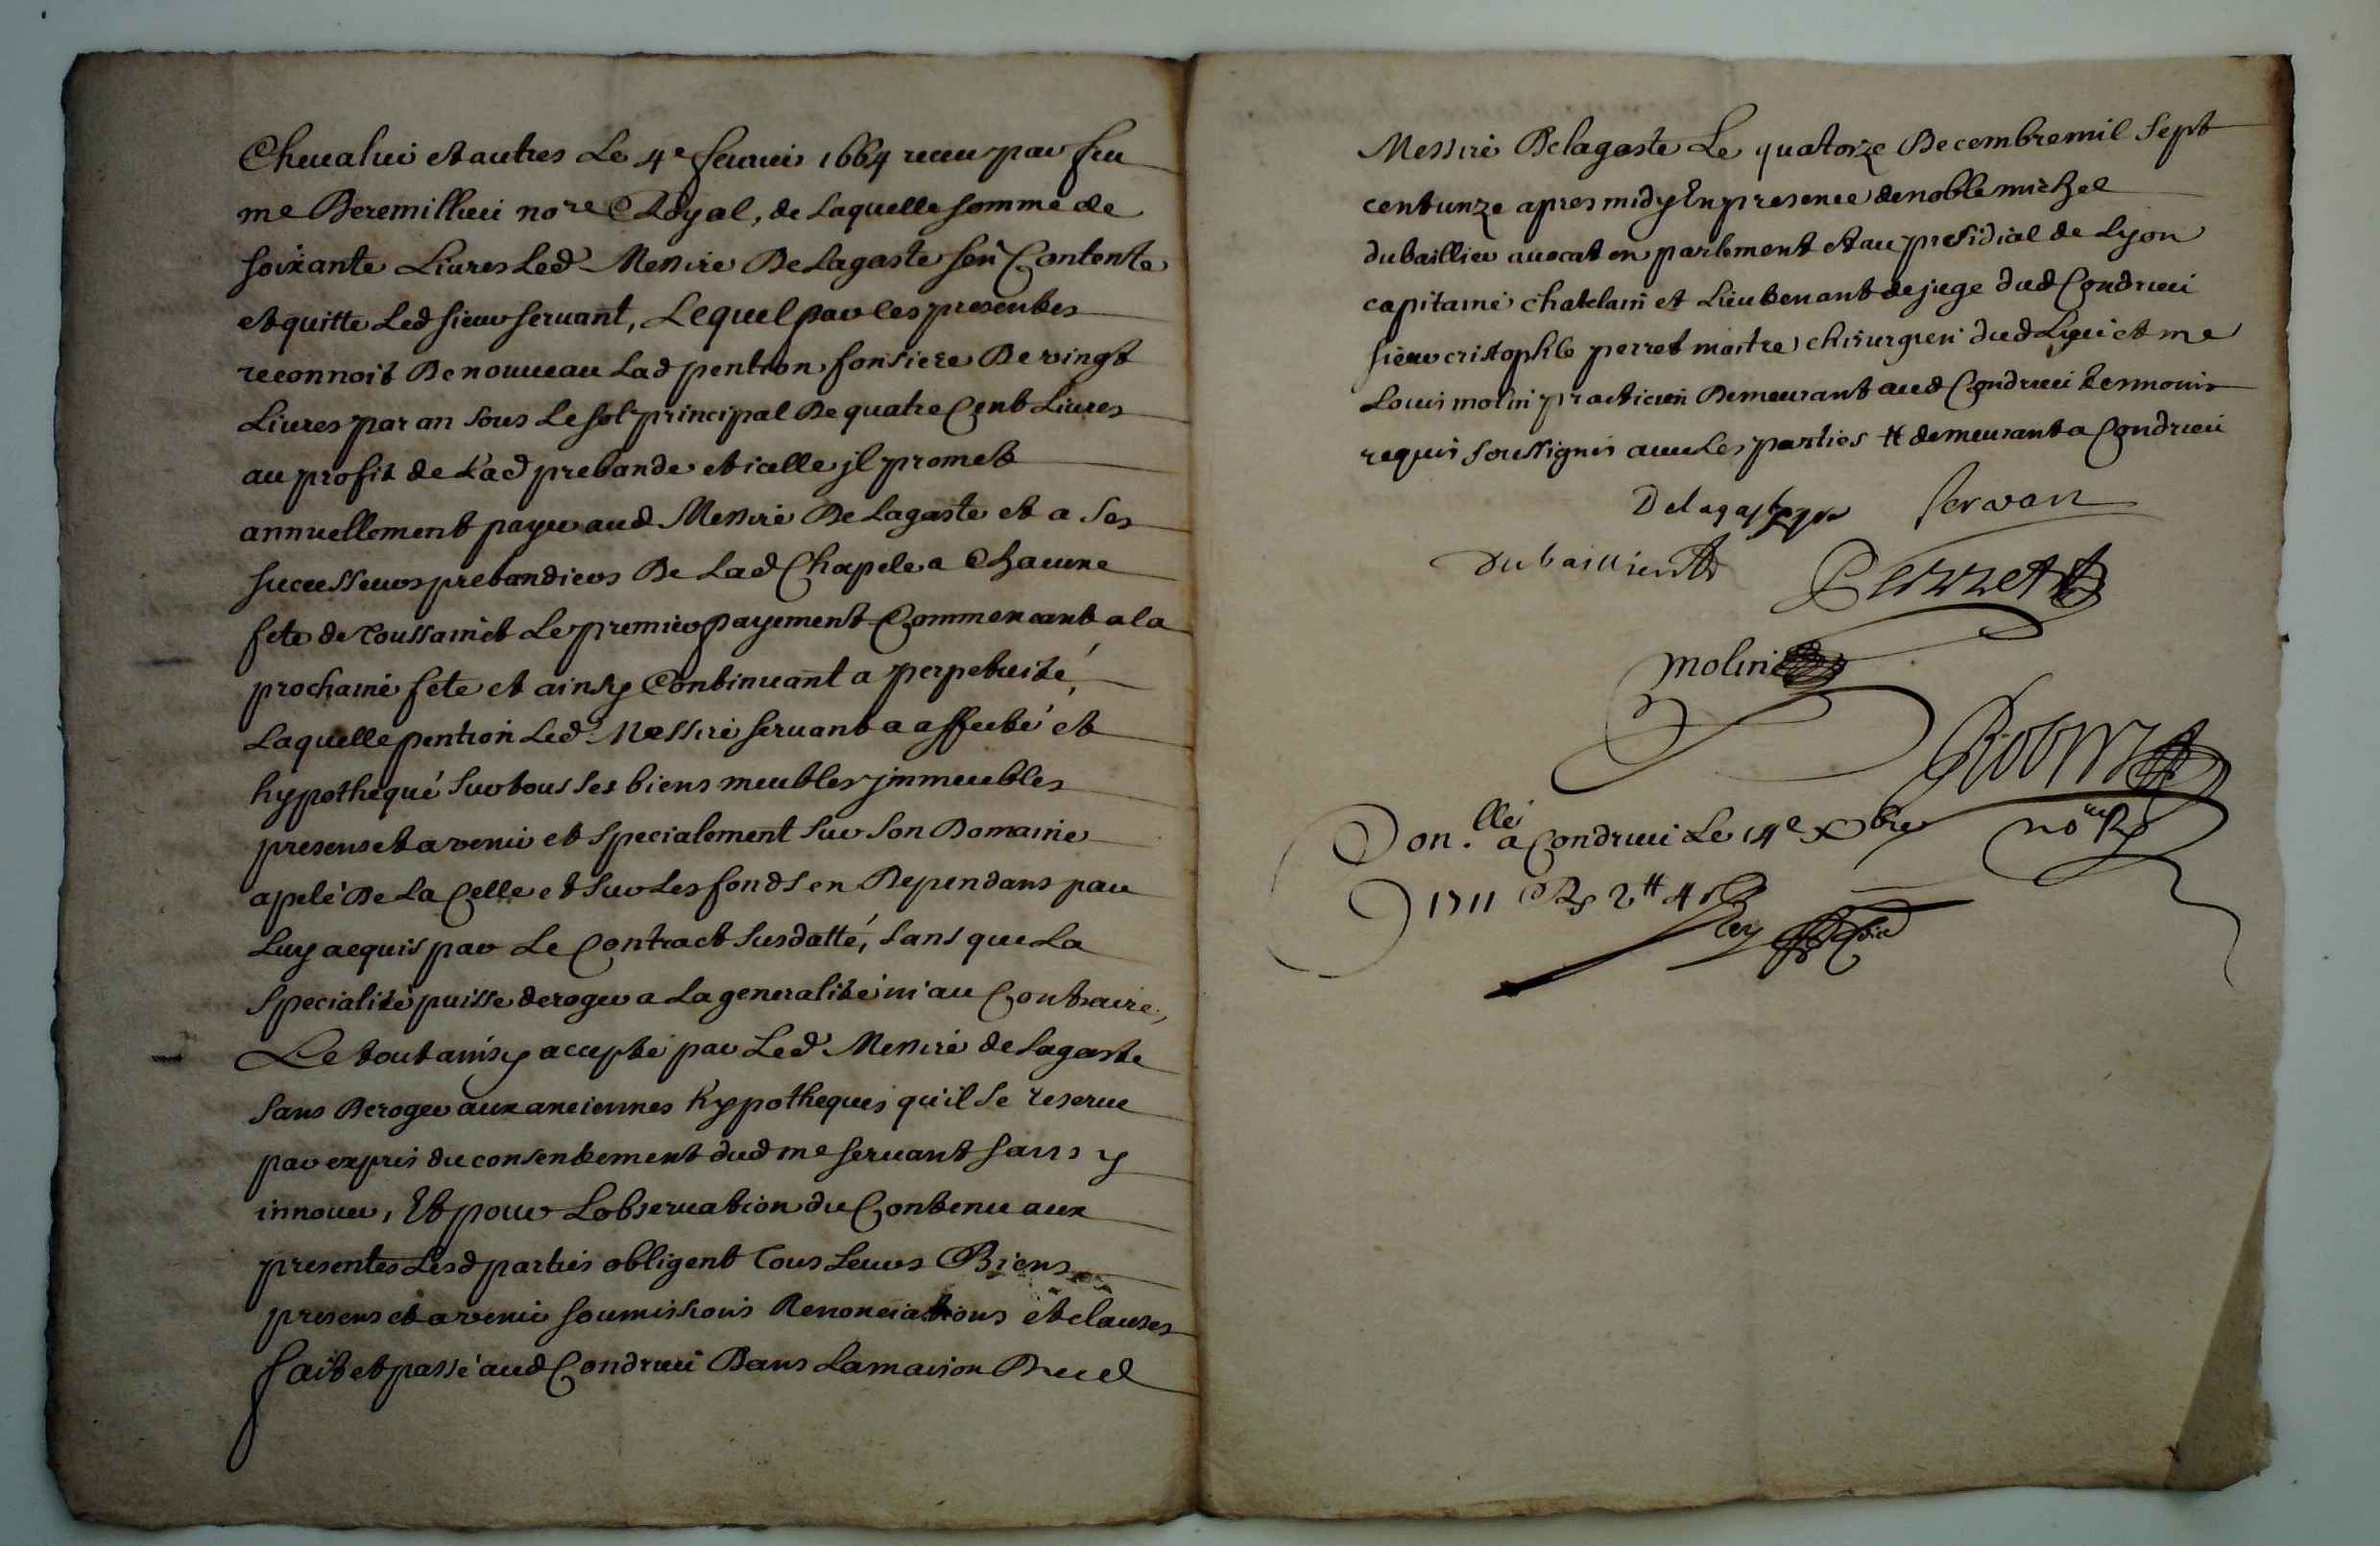 Cheualier et autres Le 4e feurier 1664 receu par feu
me Deremillieu nore Royal, de Laquelle somme de
soixante Liures Led Messire De Lagaste sen Contente
et quitte Led sieur seruant, Lequel par les presentes
reconnoit De nouueau Lad pention fonsiere De vingt
Liures par an sous Le sol principal De quatre Cent Liures
au profit de Lad prebande et icelle jl promet
annuellement payer aud Messire De Lagaste et a ses
successeurs prebandiers De Lad Chapele a Chacune
fete de Toussainct Le premier payement Commencant a la
prochaine fete et ainsy Continuant a perpetuité,
Laquelle pention Led Messire seruant a affecté et
hypothequé sur tous ses biens meubles jmmeubles
presens et a venir et specialement sur son Domaine
apelé De La Celle et sur Les fonds en Dependans par
Luy acquis par Le Contract susdatté, sans que La
specialité puisse deroger a La generalité ni au Contraire,
Le tout ainsy accepté par Led Messire de Lagaste
sans Deroger aux anciennes hypotheques qu'il se reserue
par expres du consentement dud me seruant sans y
innouer, Et pour Lobseruation du Contenu aux
presentes Lesd parties obligent tous Leurs Biens
presens et a venir soumissions Renonciations et clauses
fait et passé aud Condrieu Dans La maison Dud
Messire Delagaste Le quatorze Decembre mil sept
cent unze apres midy En presence de noble michel
dubaillier auocat en parlement et au presidial de Lyon
capitaine chatelain et Lieutenant de juge dud Condrieu
sieur cristophle perret maitre chirurgien dud Lieu et me
Louis molin practicien Demeurant aud Condrieu temoins
requis soussignes auec Les parties # demeurant a Condrieu
Delagaste servan
Dubaillier
Perret
molin
Robin
nore Ry
Don. lle a Condrieu Le 14e Xbre
1711 Rs 2tt 4s